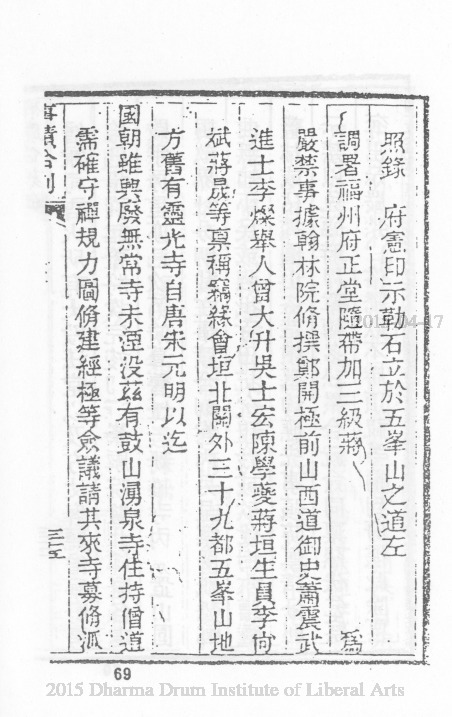 照錄　府憲印示勒石立於五峯山之道左
調署福州府正堂隨帶加三級蔣　為
嚴禁事據翰林院脩撰鄭開極前山西道御史蕭震武
進士李燦舉人曾大升吳士宏陳學夔蔣垣生員李向
斌蔣晟等稟稱竊緣會垣北關外三十九都五峯山地
方舊有靈光寺自唐宋元明以迄
國朝雖興廢無常寺未湮沒茲有鼓山湧泉寺住持僧道
需確守禪規力圖脩建經極等僉議請其來寺募脩派
事蹟合刻
三十五
69
2015-04-17
2015 Dharma Drum Institute of Liberal Arts